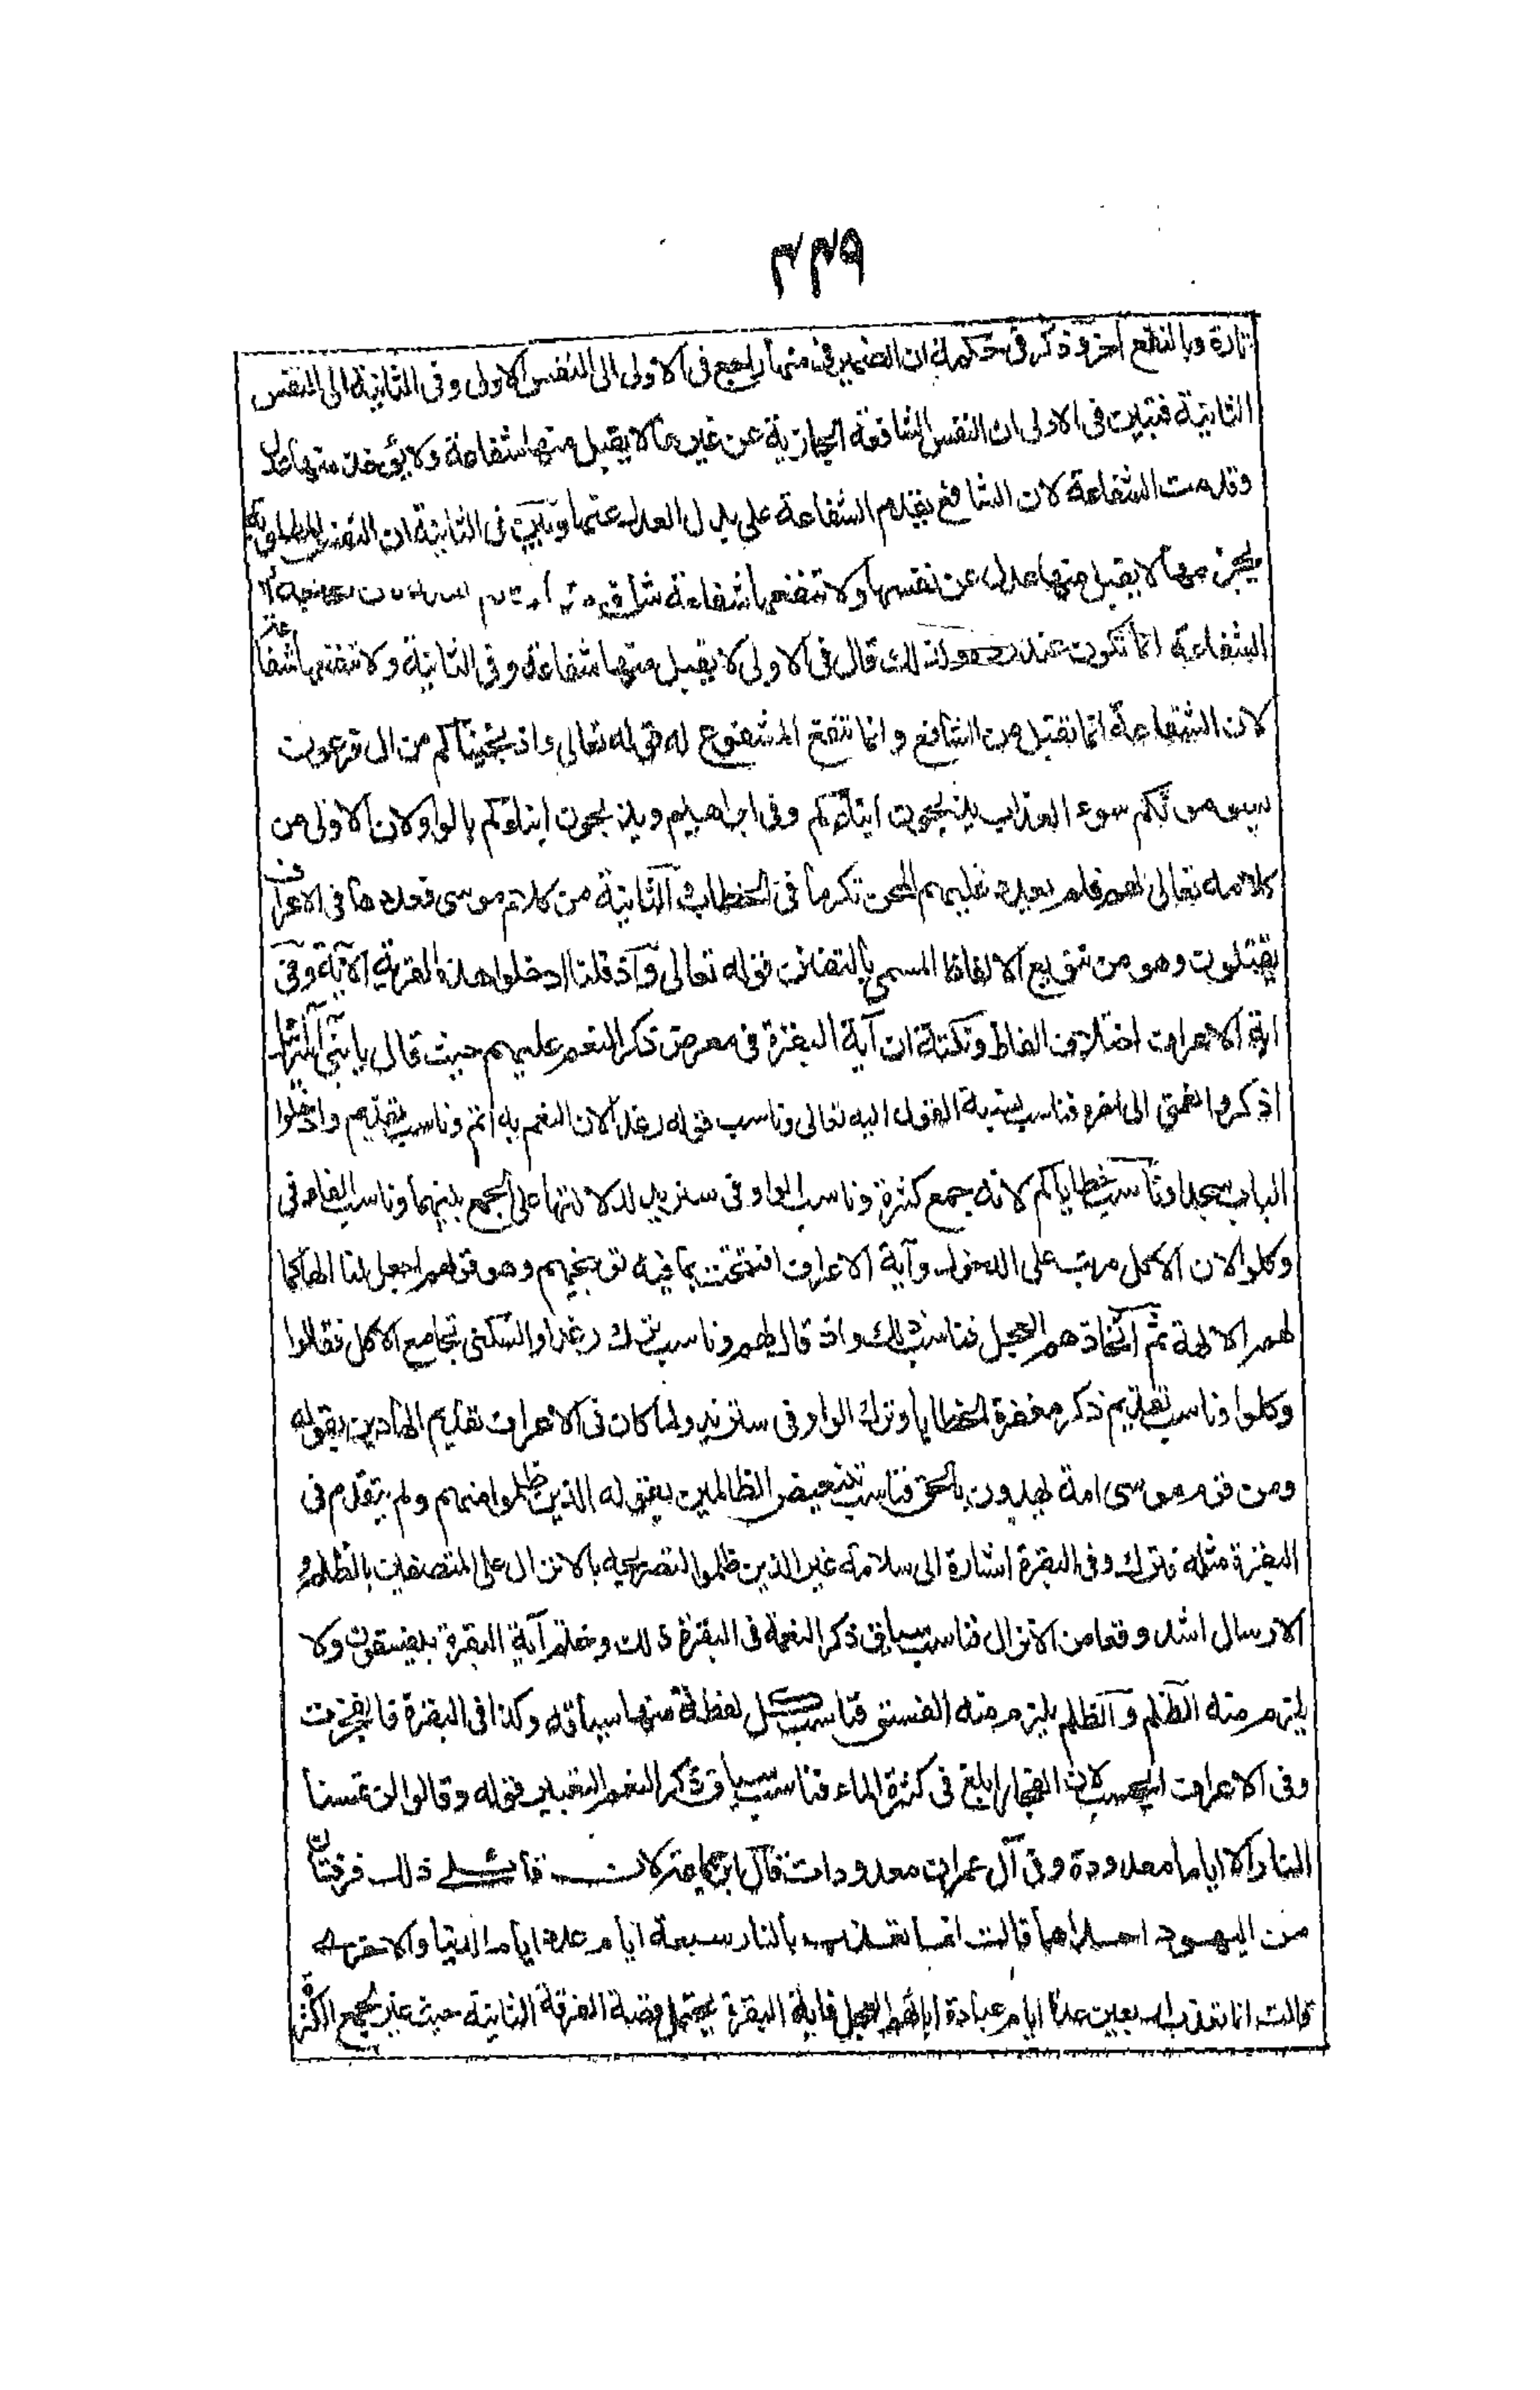 ٣٣٩
تارة وبالنفع اخرى وذكر فى حكمته ان الضمير فى منها راجع فى الاولى الى النفس الاولى وفى الثانية الى النفس
الثانية فبين فى الاولى ان النفس الشافعة الجازية عن غيرها لا يقبل منها شفاعة ولا يؤخذ منها عدل
وقدمت الشفاعة لان الشافع يقدم الشفاعة على بذل العدل عنها وبين فى الثانية ان النفس المطلوبة
بجرمها لا يقبل منها عدل عن نفسها ولا تنفعها شفاعة شافع
الشفاعة انما تكون عند ولذلك قال فى الاولى لا يقبل منها شفاعة وفى الثانية ولا تنفعها شفاعة
لان الشفاعة انما تقبل من الشافع وانما تنفع المشفوع له قوله تعالى واذ نجيناكم من ال فرعون
يسومونكم سوء العذاب يذبحون ابناءكم وفى ابراهيم ويذبحون ابناءكم بالواو لان الاولى من
كلامه تعالى لهم فلم يعدد عليهم المحن تكرما فى الخطاب والثانية من كلام موسى فعددها فى الاعراف
يقتلون وهو من تنويع الالفاظ المسمى بالتفنن قوله تعالى واذ قلنا ادخلوا هذه القرية الآية وفى
اية الاعراف اختلاف الفاظ ونكتة ان آية البقرة فى معرض ذكر النعم عليهم حيث قال يا بنى اسرائيل
اذكروا نعمتى الى اخره فناسب نسبة القول اليه تعالى وناسب قوله رغدا لان النعم به اتم وناسب تقديم وادخلوا
الباب سجدا وناسب خطاياكم لانه جمع كثرة وناسب الواو فى سنزيد لدلالتها على الجمع بينهما وناسب الفاء فى
وكلوا لان الاكل مرتب على الدخول وآية الاعراف افتتحت بما فيه توبيخهم وهو قولهم اجعل لنا الها كما
لهم الالهة ثم اتخاذهم العجل فناسب ذلك واذ قال لهم وناسب ترك رغدا والسكنى تجامع الاكل فقالوا
وكلوا وناسب تقديم ذكر مغفرة الخطايا وترك الواو فى سنزيد ولما كان فى الاعراف تقديم الهادين بقوله
ومن قوم موسى امة يهدون بالحق فناسب تبعيض الظالمين بقوله الذين ظلموا منهم ولم يتقدم فى
البقرة مثله فترك وفى البقرة اشارة الى سلامة غير الذين ظلموا لتصريحه بالانزال على المتصفين بالظلم و
الارسال اشد وقعا من الانزال فناسب سياق ذكر النعمة فى البقرة ذلك وختم آية البقرة بيفسقون ولا
يلزم منه الظلم والظلم يلزم منه الفسق فناسب كل لفظة منها سياقه وكذا فى البقرة فانفجرت
وفى الاعراف انبجست لان الانفجار ابلغ فى كثرة الماء فناسب سياق ذكر النعم التعبير قوله وقالوا لن تمسنا
النار الا اياما معدودة وفى آل عمران معدودات قال ابن جماعة لان قائلى ذلك فرقتان
من اليهود احداهما قالت انما نعذب بالنار سبعة ايام عدة ايام الدنيا والاخرى
قالت انما نعذب اربعين عدة ايام عبادة ابائهم العجل فاية البقرة يحتمل قصة الفرقة الثانية حيث عبر بجمع الكثرة